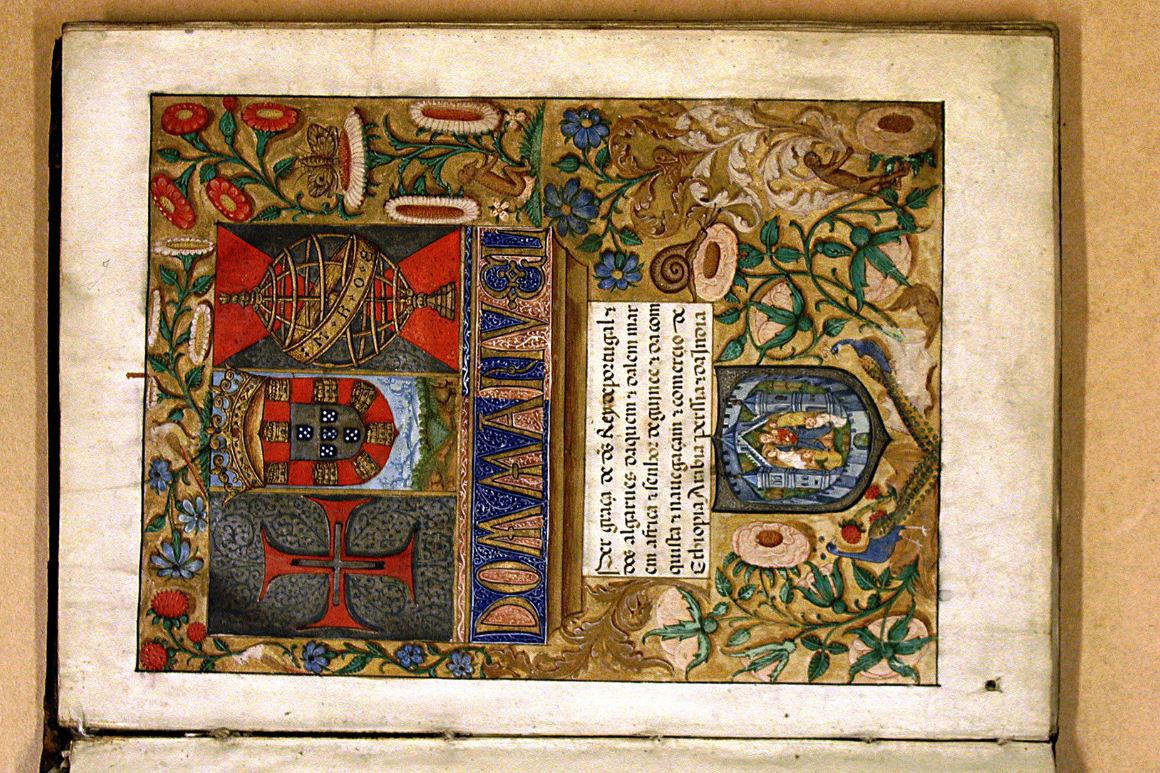 DOM MANVEL
Per graça de d̃s Rey de portugal: ⁊
dos algarues daquem ⁊ dalem mar
em africa ⁊ senhor de guinee: ⁊ da com
quista ⁊ nauegacam ⁊ comercio de
Ethiopia Arabia perssia ⁊ da india